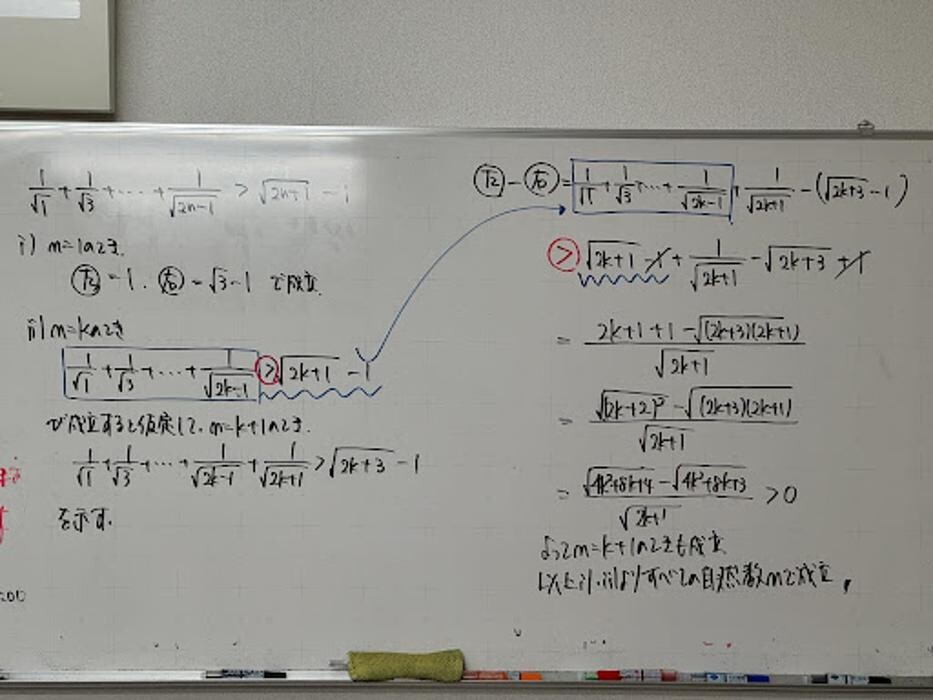 1/√1 + 1/√3 + ⋯ + 1/√(2n-1) > √(2n+1) - 1
i) n=1のとき.
㊧=1. ㊨=√3-1 で成立.
ii) n=kのとき
1/√1 + 1/√3 + ⋯ + 1/√(2k-1) > √(2k+1) - 1
で成立すると仮定して. n=k+1のとき.
1/√1 + 1/√3 + ⋯ + 1/√(2k-1) + 1/√(2k+1) > √(2k+3) - 1
を示す.
㊧ - ㊨ = 1/√1 + 1/√3 + ⋯ + 1/√(2k-1) + 1/√(2k+1) - (√(2k+3) - 1)
> √(2k+1) - 1 + 1/√(2k+1) - √(2k+3) + 1
= (2k+1+1-√((2k+3)(2k+1)))/√(2k+1)
= (√((2k+2)²) - √((2k+3)(2k+1)))/√(2k+1)
= (√(4k²+8k+4) - √(4k²+8k+3))/√(2k+1) > 0
よってn=k+1のときも成立.
以上i),ii)よりすべての自然数nで成立.